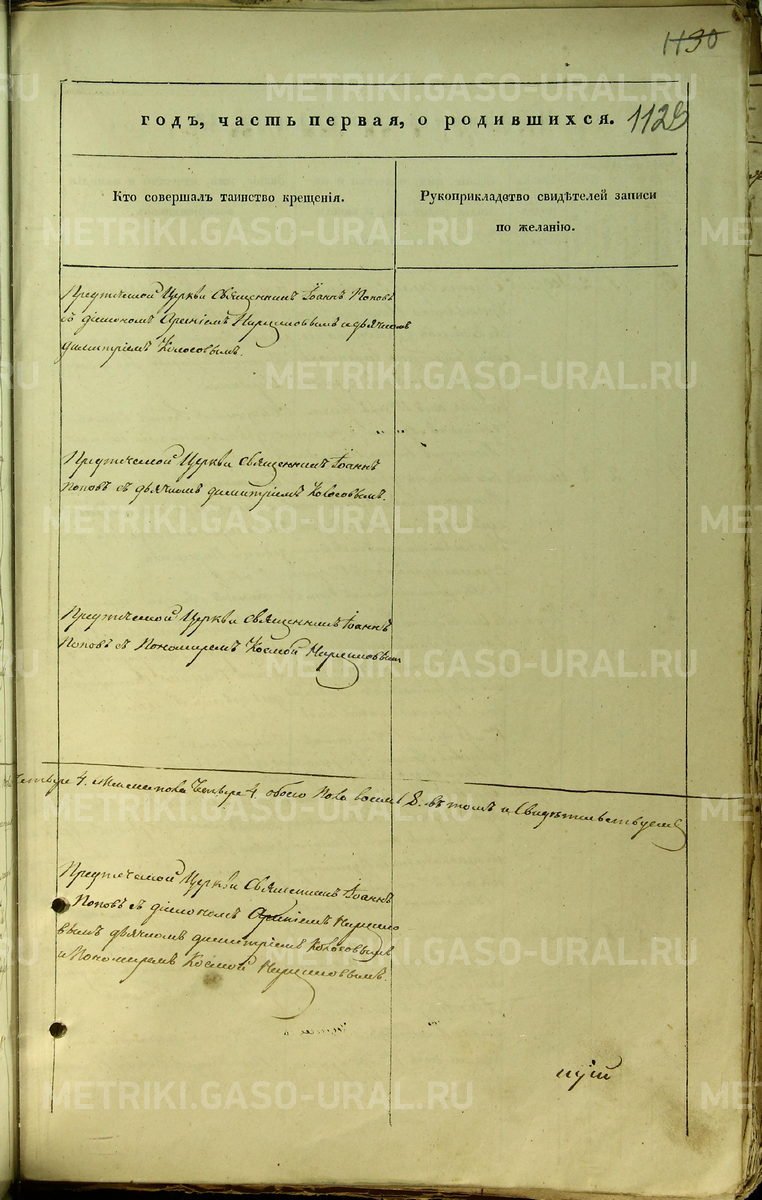 1130
годъ, часть первая, о родившихся. 1129
Кто совершалъ таинство крещенія.
Рукоприкладство свидѣтелей записи
по желанію.
Предтечевой Церкви Священникъ Іоаннъ Поповъ
съ діакономъ и дьячкомъ
Димитріемъ Колосовымъ.
Предтечевой Церкви Священникъ Іоаннъ
Поповъ съ дьячкомъ Димитріемъ Колосовымъ.
Предтечевой Церкви Священникъ Іоаннъ
Поповъ съ Пономаремъ Космой
4. пола 4. обоего пола восемь 8. въ томъ и Свидѣтельствуемъ
Предтечевой Церкви Священникъ Іоаннъ
Поповъ съ діакономъ
вымъ дьячкомъ Димитріемъ Колосовымъ
и Пономаремъ Космой
METRIKI.GASO-URAL.RU